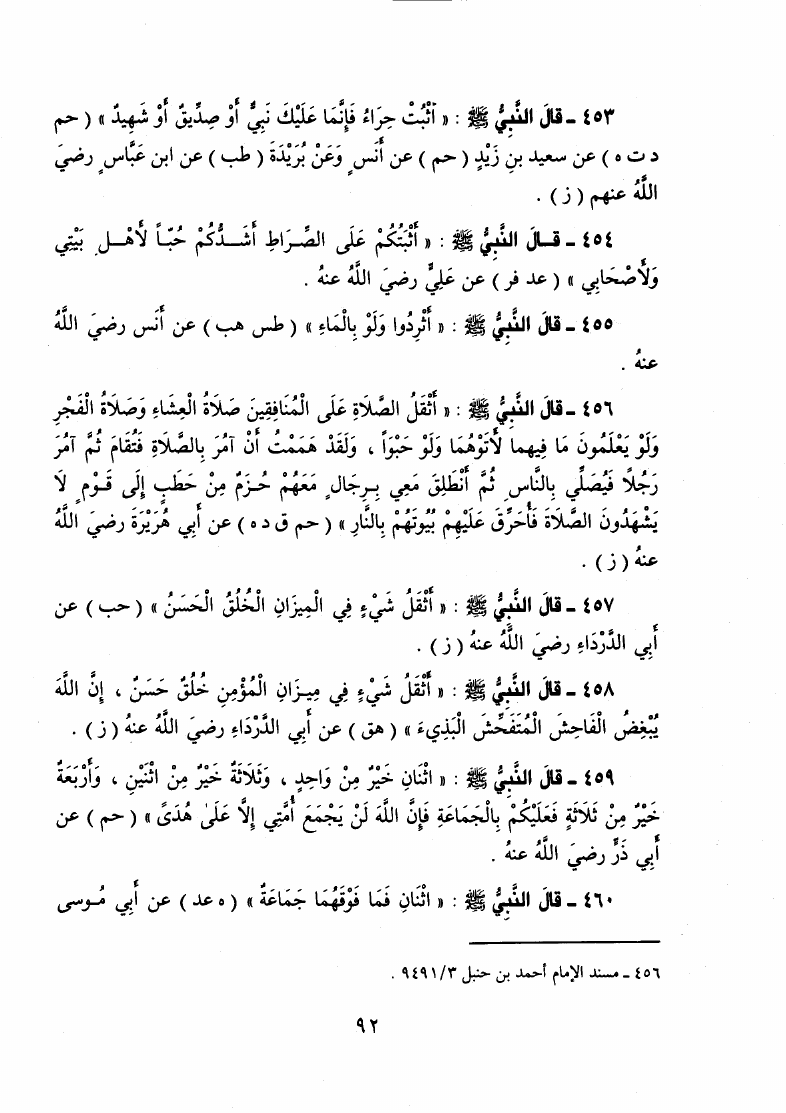 ٤٥٣ - قَالَ النَّبِيُّ ﷺ : « اثْبُتْ حِرَاءُ فَإِنَّمَا عَلَيْكَ نَبِيٌّ أَوْ صِدِّيقٌ أَوْ شَهِيدٌ » ( حم
د ت ه ) عن سعيد بنِ زَيْدٍ ( حم ) عن أَنَسٍ وَعَنْ بُرَيْدَةَ ( طب ) عن ابن عَبَّاسٍ رضيَ
اللَّهُ عنهم ( ز ) .
٤٥٤ - قَالَ النَّبِيُّ ﷺ : « أَثْبَتُكُمْ عَلَى الصِّرَاطِ أَشَدُّكُمْ حُبّاً لأَهْلِ بَيْتِي
وَلأَصْحَابِي » ( عد فر ) عن عَلِيٍّ رضيَ اللَّهُ عنهُ .
٤٥٥ - قَالَ النَّبِيُّ ﷺ : « أَثْرِدُوا وَلَوْ بِالْمَاءِ » ( طس هب ) عن أَنَس رضيَ اللَّهُ
عنهُ .
٤٥٦ - قَالَ النَّبِيُّ ﷺ : « أَثْقَلُ الصَّلَاةِ عَلَى الْمُنَافِقِينَ صَلَاةُ الْعِشَاءِ وَصَلَاةُ الْفَجْرِ
وَلَوْ يَعْلَمُونَ مَا فِيهِما لأَتَوْهُمَا وَلَوْ حَبْواً ، وَلَقَدْ هَمَمْتُ أَنْ آمُرَ بِالصَّلَاةِ فَتُقَامَ ثُمَّ آمُرَ
رَجُلاً فَيُصَلِّي بِالنَّاسِ ثُمَّ أَنْطَلِقَ مَعِي بِرِجَالٍ مَعَهُمْ حُزَمٌ مِنْ حَطَبٍ إِلَى قَوْمٍ لَا
يَشْهَدُونَ الصَّلَاةَ فَأُحَرِّقَ عَلَيْهِمْ بُيُوتَهُمْ بِالنَّارِ » ( حم ق د ه ) عن أَبِي هُرَيْرَةَ رضيَ اللَّهُ
عنهُ ( ز ) .
٤٥٧ - قَالَ النَّبِيُّ ﷺ : « أَثْقَلُ شَيْءٍ فِي الْمِيزَانِ الْخُلُقُ الْحَسَنُ » ( حب ) عن
أَبِي الدَّرْدَاءِ رضيَ اللَّهُ عنهُ ( ز ) .
٤٥٨ - قَالَ النَّبِيُّ ﷺ : « أَثْقَلُ شَيْءٍ فِي مِيزَانِ الْمُؤْمِنِ خُلُقٌ حَسَنٌ ، إِنَّ اللَّهَ
يُبْغِضُ الْفَاحِشَ الْمُتَفَحِّشَ الْبَذِيءَ » ( هق ) عن أَبِي الدَّرْدَاءِ رضيَ اللَّهُ عنهُ ( ز ) .
٤٥٩ - قَالَ النَّبِيُّ ﷺ : « اثْنَانِ خَيْرٌ مِنْ وَاحِدٍ ، وَثَلَاثَةٌ خَيْرٌ مِنْ اثْنَيْنِ ، وَأَرْبَعَةٌ
خَيْرٌ مِنْ ثَلَاثَةٍ فَعَلَيْكُمْ بِالْجَمَاعَةِ فَإِنَّ اللَّهَ لَنْ يَجْمَعَ أُمَّتِي إِلَّا عَلَىٰ هُدَىً » ( حم ) عن
أَبِي ذَرٍّ رضيَ اللَّهُ عنهُ .
٤٦٠ - قَالَ النَّبِيُّ ﷺ : « اثْنَانِ فَمَا فَوْقَهُمَا جَمَاعَةٌ » ( ه عد ) عن أَبِي مُوسى
٤٥٦ - مسند الإمام أحمد بن حنبل ٩٤٩١/٣ .
٩٢